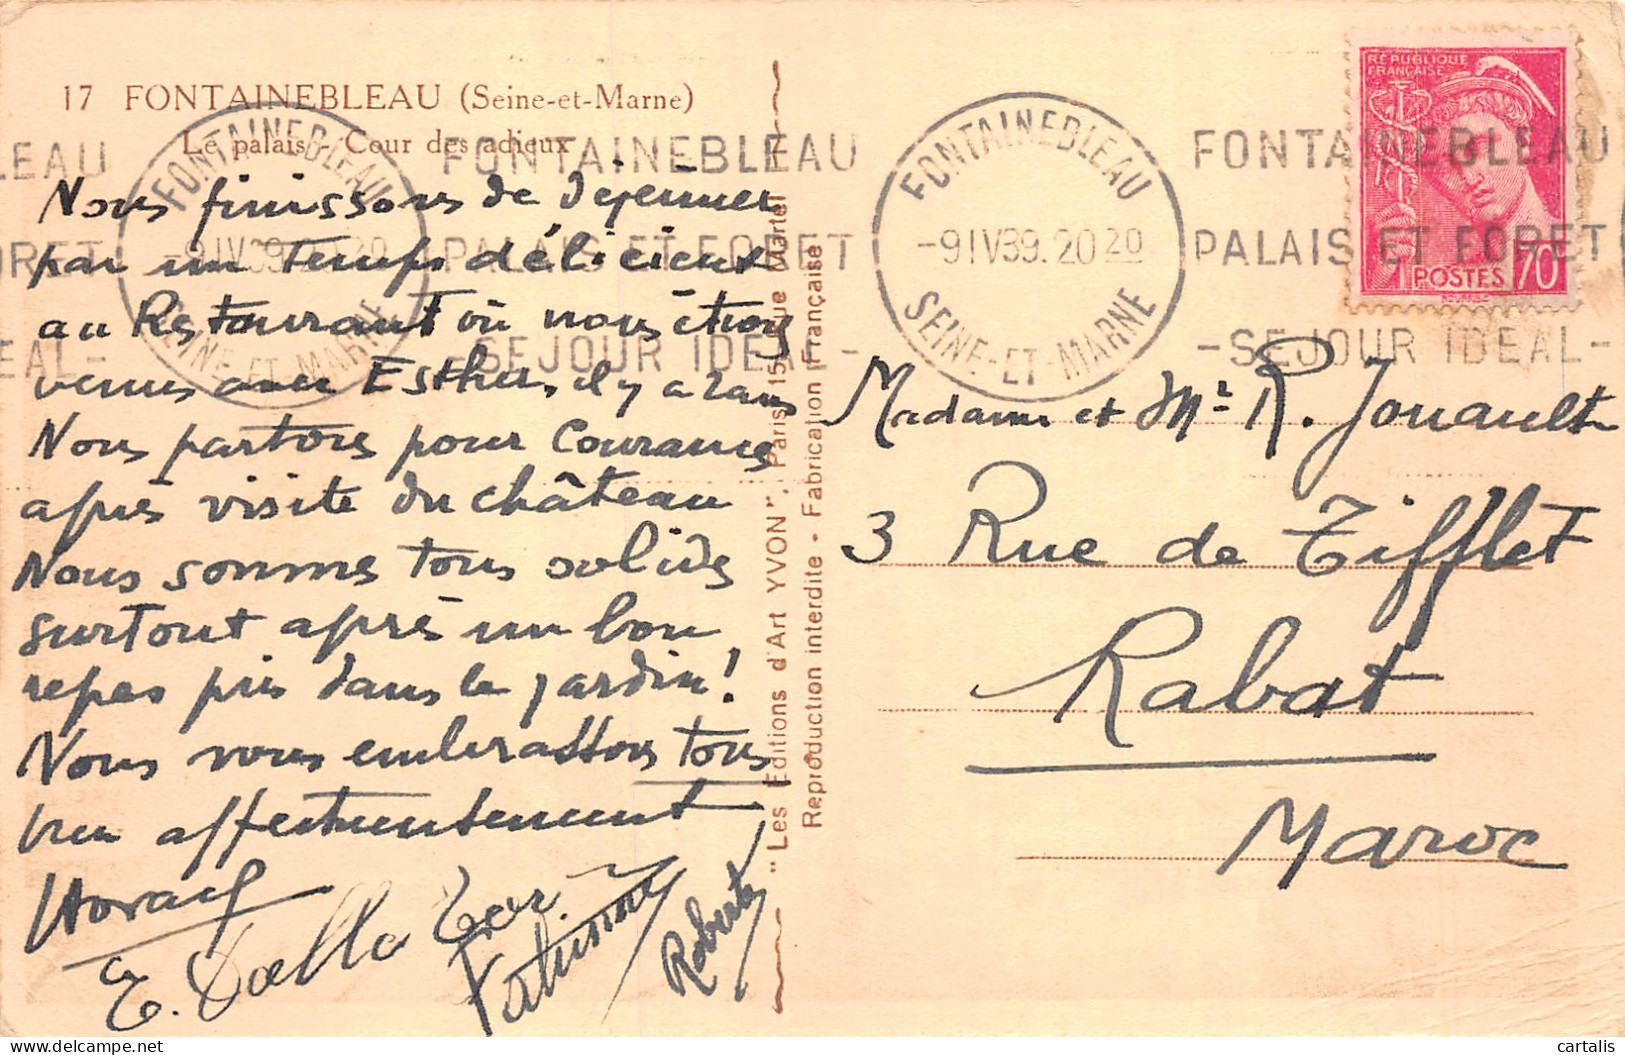 17 FONTAINEBLEAU (Seine-et-Marne)
Le palais - Cour des adieux
Nous finissons de déjeuner
par un temps délicieux
au Restaurant où nous étions
venus avec Esther, il y a 2 ans
Nous partons pour Courances
après visite du château
Nous sommes tous solides
surtout après un bon
repas pris dans le jardin!
Nous vous embrassons tous
bien affectueusement
E. Dalla
Roberte
"Les Editions d'Art YVON", Paris, 15, rue Martel
Reproduction interdite - Fabrication Française
LEAU
ORET
EAL-
FONTAINEBLEAU
SEINE-ET-MARNE
-9IV39.2020
FONTAINEBLEAU
PALAIS ET FORET
-SEJOUR IDEAL-
FONTAINEBLEAU
-9IV39.2020
SEINE-ET-MARNE
FONTAINEBLEAU
PALAIS ET FORET
-SEJOUR IDEAL-
REPUBLIQUE
FRANÇAISE
POSTES 70
Madame et Mr R. Jouault
3 Rue de Tifflet
Rabat
Maroc
cartalis